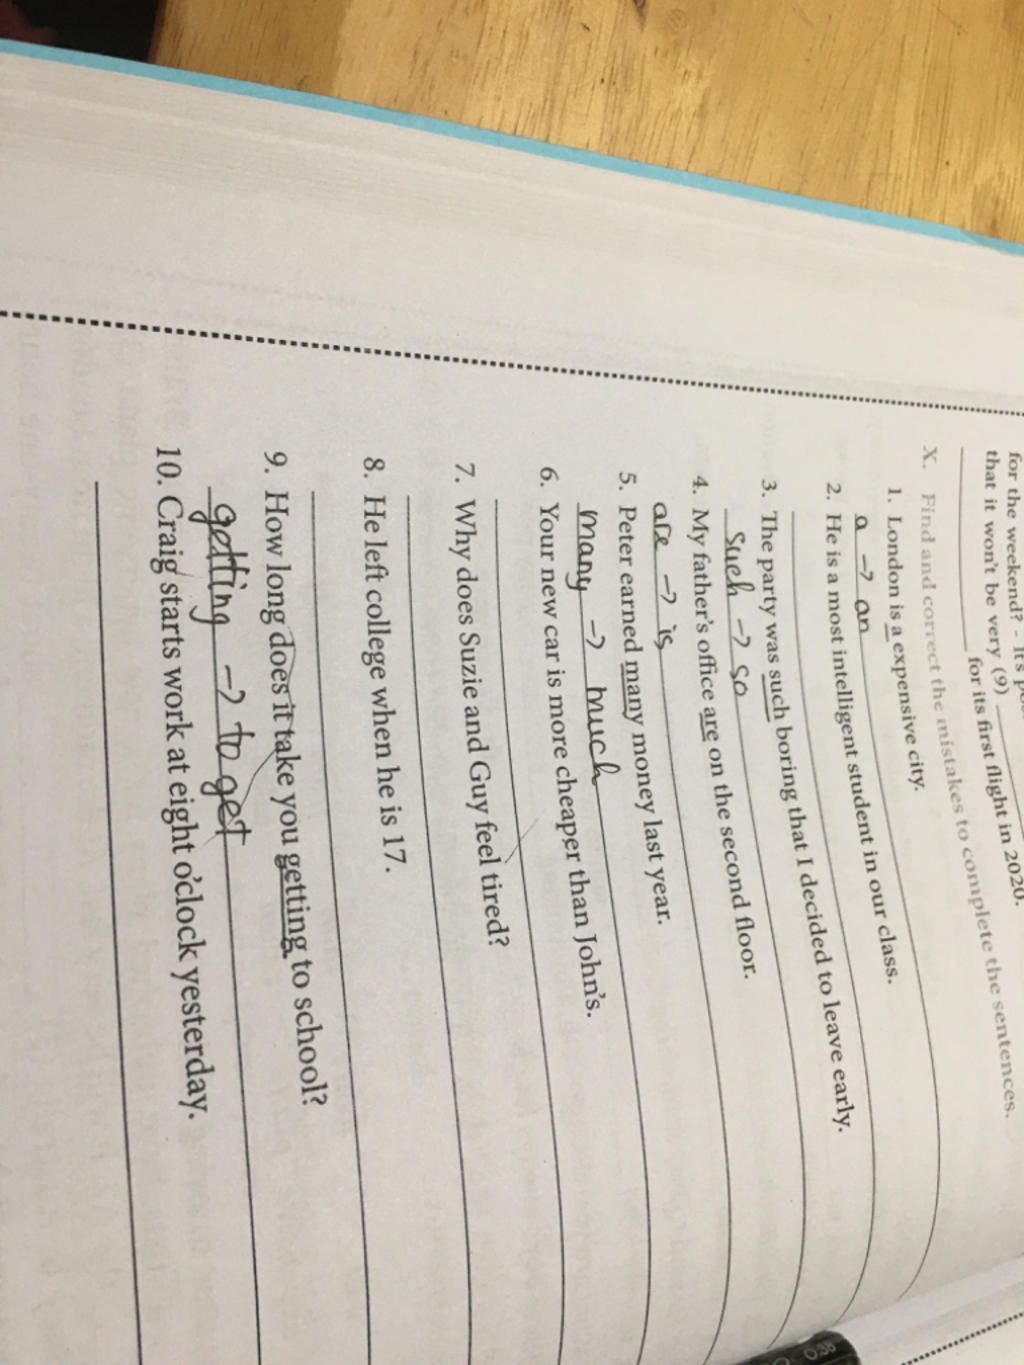 for the weekend? – It's
that it won't be very (9)
for its first flight in 2020.
X. Find and correct the mistakes to complete the sentences.
1. London is a expensive city.
a → an
2. He is a most intelligent student in our class.
3. The party was such boring that I decided to leave early.
Such → so
4. My father's office are on the second floor.
are → is
5. Peter earned many money last year.
many → much
6. Your new car is more cheaper than John's.
7. Why does Suzie and Guy feel tired?
8. He left college when he is 17.
9. How long does it take you getting to school?
getting → to get
10. Craig starts work at eight o'clock yesterday.